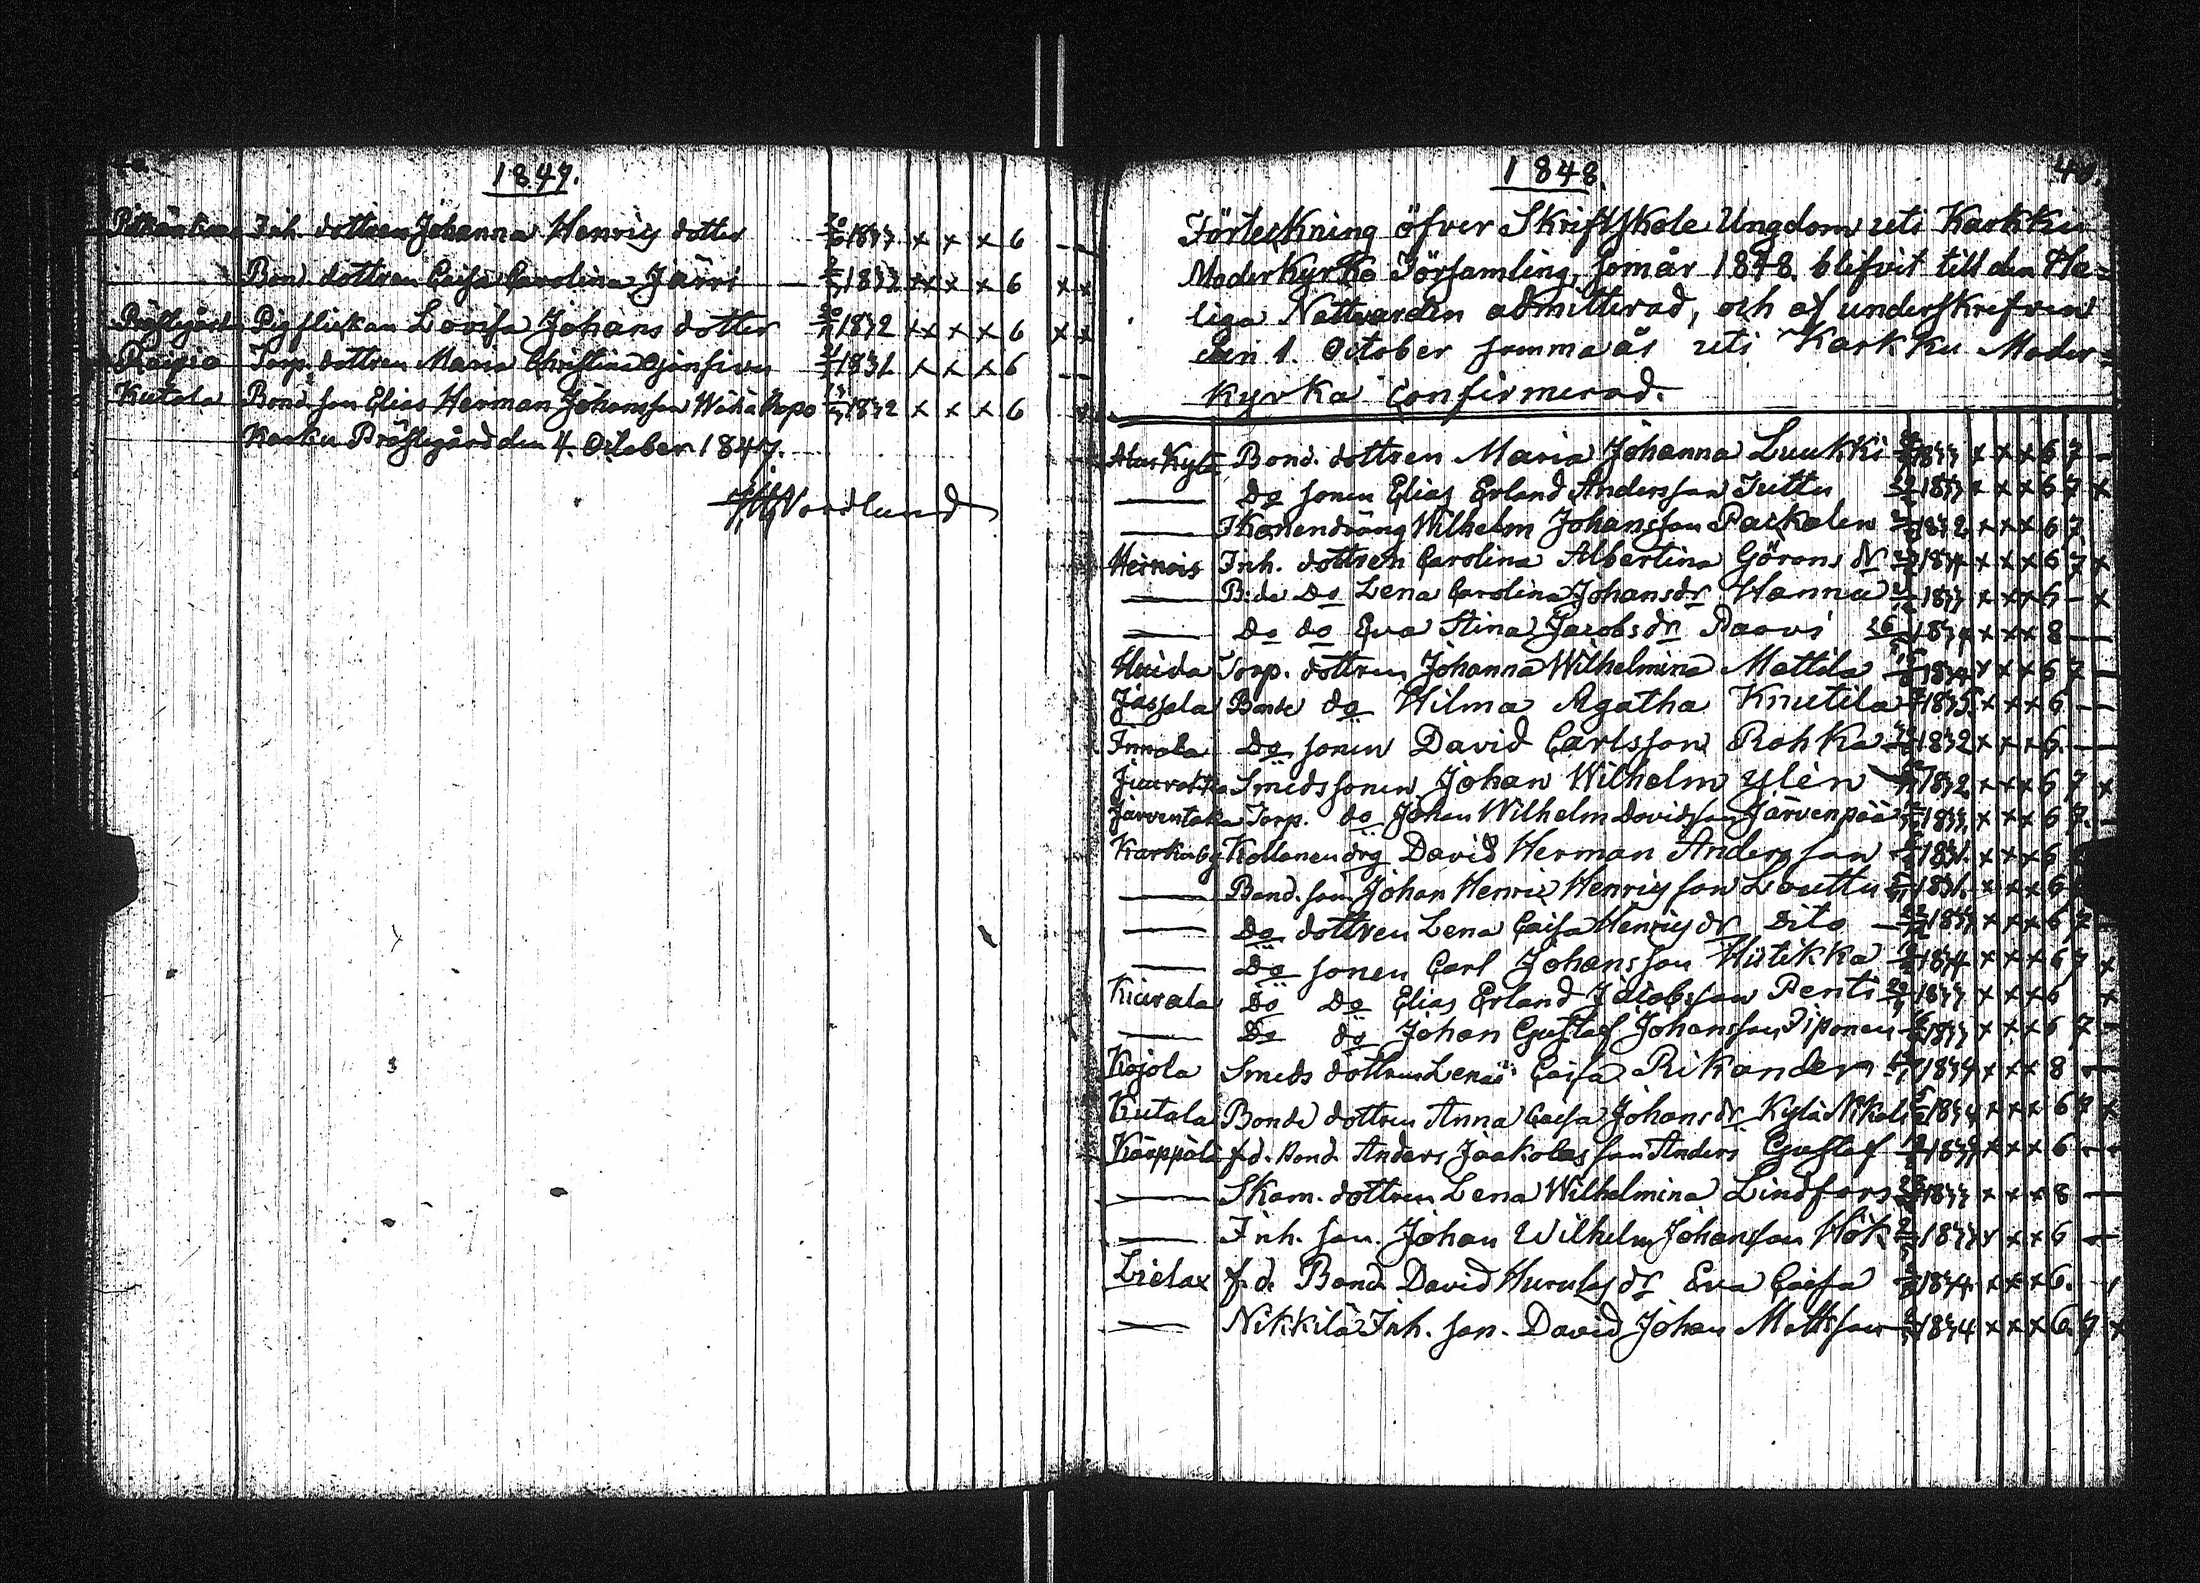 1847.
Inh. dottren Johanna Henrics dotter 1833 x x x 6
Bond dottren Caisa Carolina Järvi 1832 x x x x 6 x x
Prästegård Pigflickan Lovisa Johans dotter 1832 x x x x 6 x x
Torp. dottren Maria Christina 1831 x x x 6 —
Kutala Bond son Elias Herman Johansson Wähä Ropo 1832 x x x 6 x
Karku Prästegård den 4. October 1847.
Nordlund
1848.
Förteckning öfver Skriftskole Ungdom uti Karkku
Moderkyrko Församling, som år 1848 blifvit till den He=
liga Nattvarden admitterad, och af underskrefven
den 1. October samma år uti Karkku Moder=
kyrka Confirmerad.
Aluskylä Bond. dottren Maria Johanna Luukki 1833 x x x 6 7 —
— Do sonen Elias Erland Andersson Juttu 1833 x x x 6 7 x
— Wilhelm Johansson 1832 x x x 6 7
Heinois Inh. dottren Carolina Albertina Görans dr 1834 x x x 6 7 x
— B:de Do Lena Carolina Johansdr Hannu 1833 x x x 6 — x
— do do Eva Stina Jacobsdr Paavi 1834 x x x 8 —
Huida Torp. dottren Johanna Wilhelmina Mattila 1834 x x x 6 7 —
Jassala Bonde do Hilma Agatha Knutila 1835 x x x 6 —
Innala do sonen David Carlsson Rohka 1832 x x x 6. —
Smedssonen Johan Wilhelm Ylén 1832 x x x 6 7 x
Järventaka Torp. do Johan Wilhelm Davidsson Järvenpää 1833 x x x 6 7. —
Karkuby Kollanen drg David Herman Andersson 1831. x x x 6
— Bond. son Johan Henric Henricsson Louttu 1831. x x x 6
— do dottren Lena Caisa Henricsdr Dito 1833 x x x 6 7 —
— Do sonen Carl Johansson Hütikka 1834 x x x 6 7 x
Kiurala Do Do Elias Erland Jacobsson Penti 1833 x x x 6 x
— Do do Johan Gustaf Johansson Piponen 1833 x x x 6 7 —
Kojola Smeds dottren Lena Caisa Rikander 1834 x x x 8 —
Kutala Bonde dottren Anna Caisa Johansdr Kylä Nikola 1834 x x x 6 7 x
Käoppälä f.d. Bond. Anders Jaakolas son Anders Gustaf x x x 6 —
— Skom. dottren Lena Wilhelmina Lindfors 1833 x x x 8 —
— Inh. son. Johan Wilhelm Johansson Hök 1833 x x x 6 —
Lielax f.d. Bond. David Hurulas dr Eva Caisa 1834 x x x 6.
— Nikkilä Inh. son. David Johan Mattsson 1834 x x x 6. 7 x